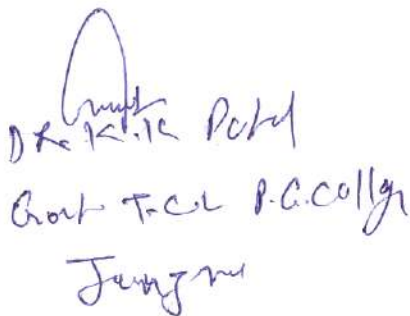 Dr. K.K. Patel
Govt T.C.L P.G. College
Janjgir